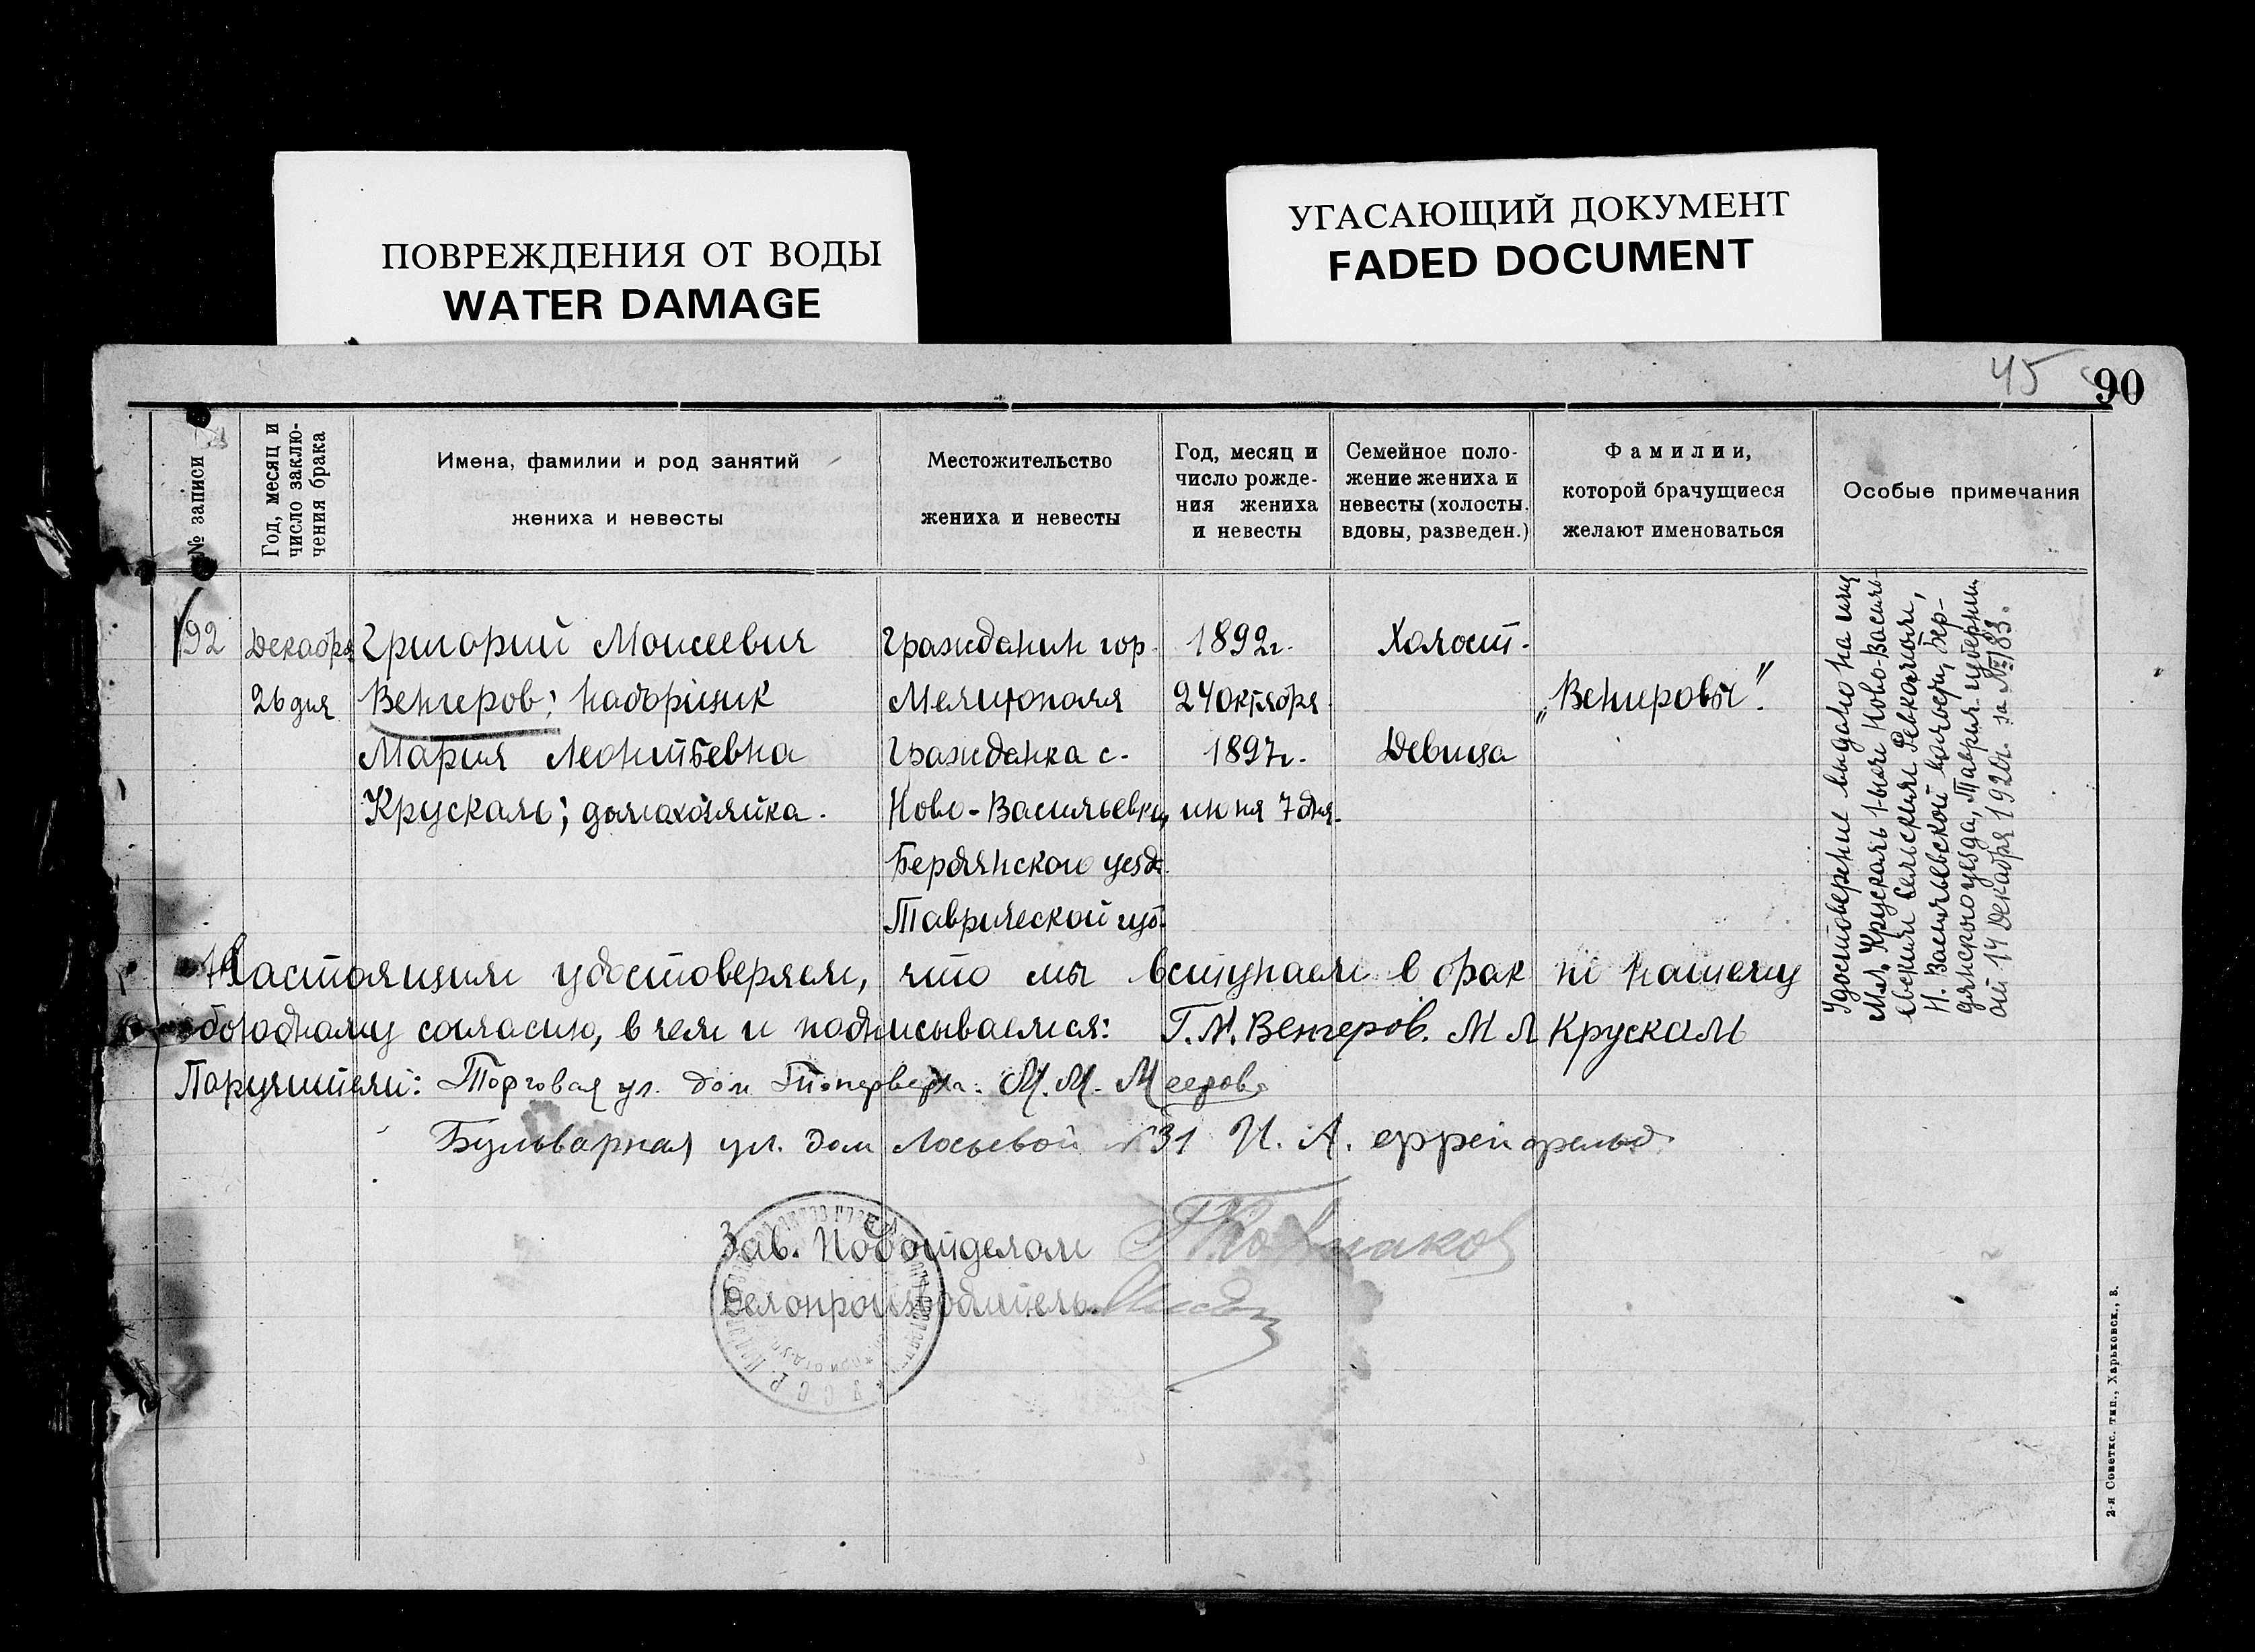 ПОВРЕЖДЕНИЯ ОТ ВОДЫ
WATER DAMAGE
УГАСАЮЩИЙ ДОКУМЕНТ
FADED DOCUMENT
45 90
№ записи
Год, месяц и
число заклю-
чения брака
Имена, фамилии и род занятий
жениха и невесты
Местожительство
жениха и невесты
Год, месяц и
число рожде-
ния жениха
и невесты
Семейное поло-
жение жениха и
невесты (холосты.
вдовы, разведен.)
Фамилии,
которой брачущиеся
желают именоваться
Особые примечания
92
Декабря
26 дня
Григорий Моисеевич
Венгеров; наборщик
Мария Леонтьевна
Крускаль; домахозяйка.
Гражданин гор.
Мелитополя
Гражданка с.
Ново-Васильевки,
Бердянского уезд.
Таврической губ.
1892г.
24 октября
1897г.
июня 7 дня.
Холост.
Девица
„Венгеровы".
Удостоверение выдано на имя
М.Л. Крускаль 1-вым Ново-Василь-
евским Сельским Ревкомом,
Н. Васильевской волости, Бер-
дянского уезда, Таврич. губернии
от 14 Декабря 1920г. за № 183.
Настоящим удостоверяем, что мы вступаем в брак по нашему
свободному согласию, в чем и подписываемся: Г.М. Венгеров. М Л Крускаль
Поручители: Торговая ул. дом М.М. Мееров
Бульварная ул. дом Лосьевой №31 И. А.
Зав. Подотделом
Делопроизводитель
У С С Р
2-я Советск. тип., Харьковск., 8.